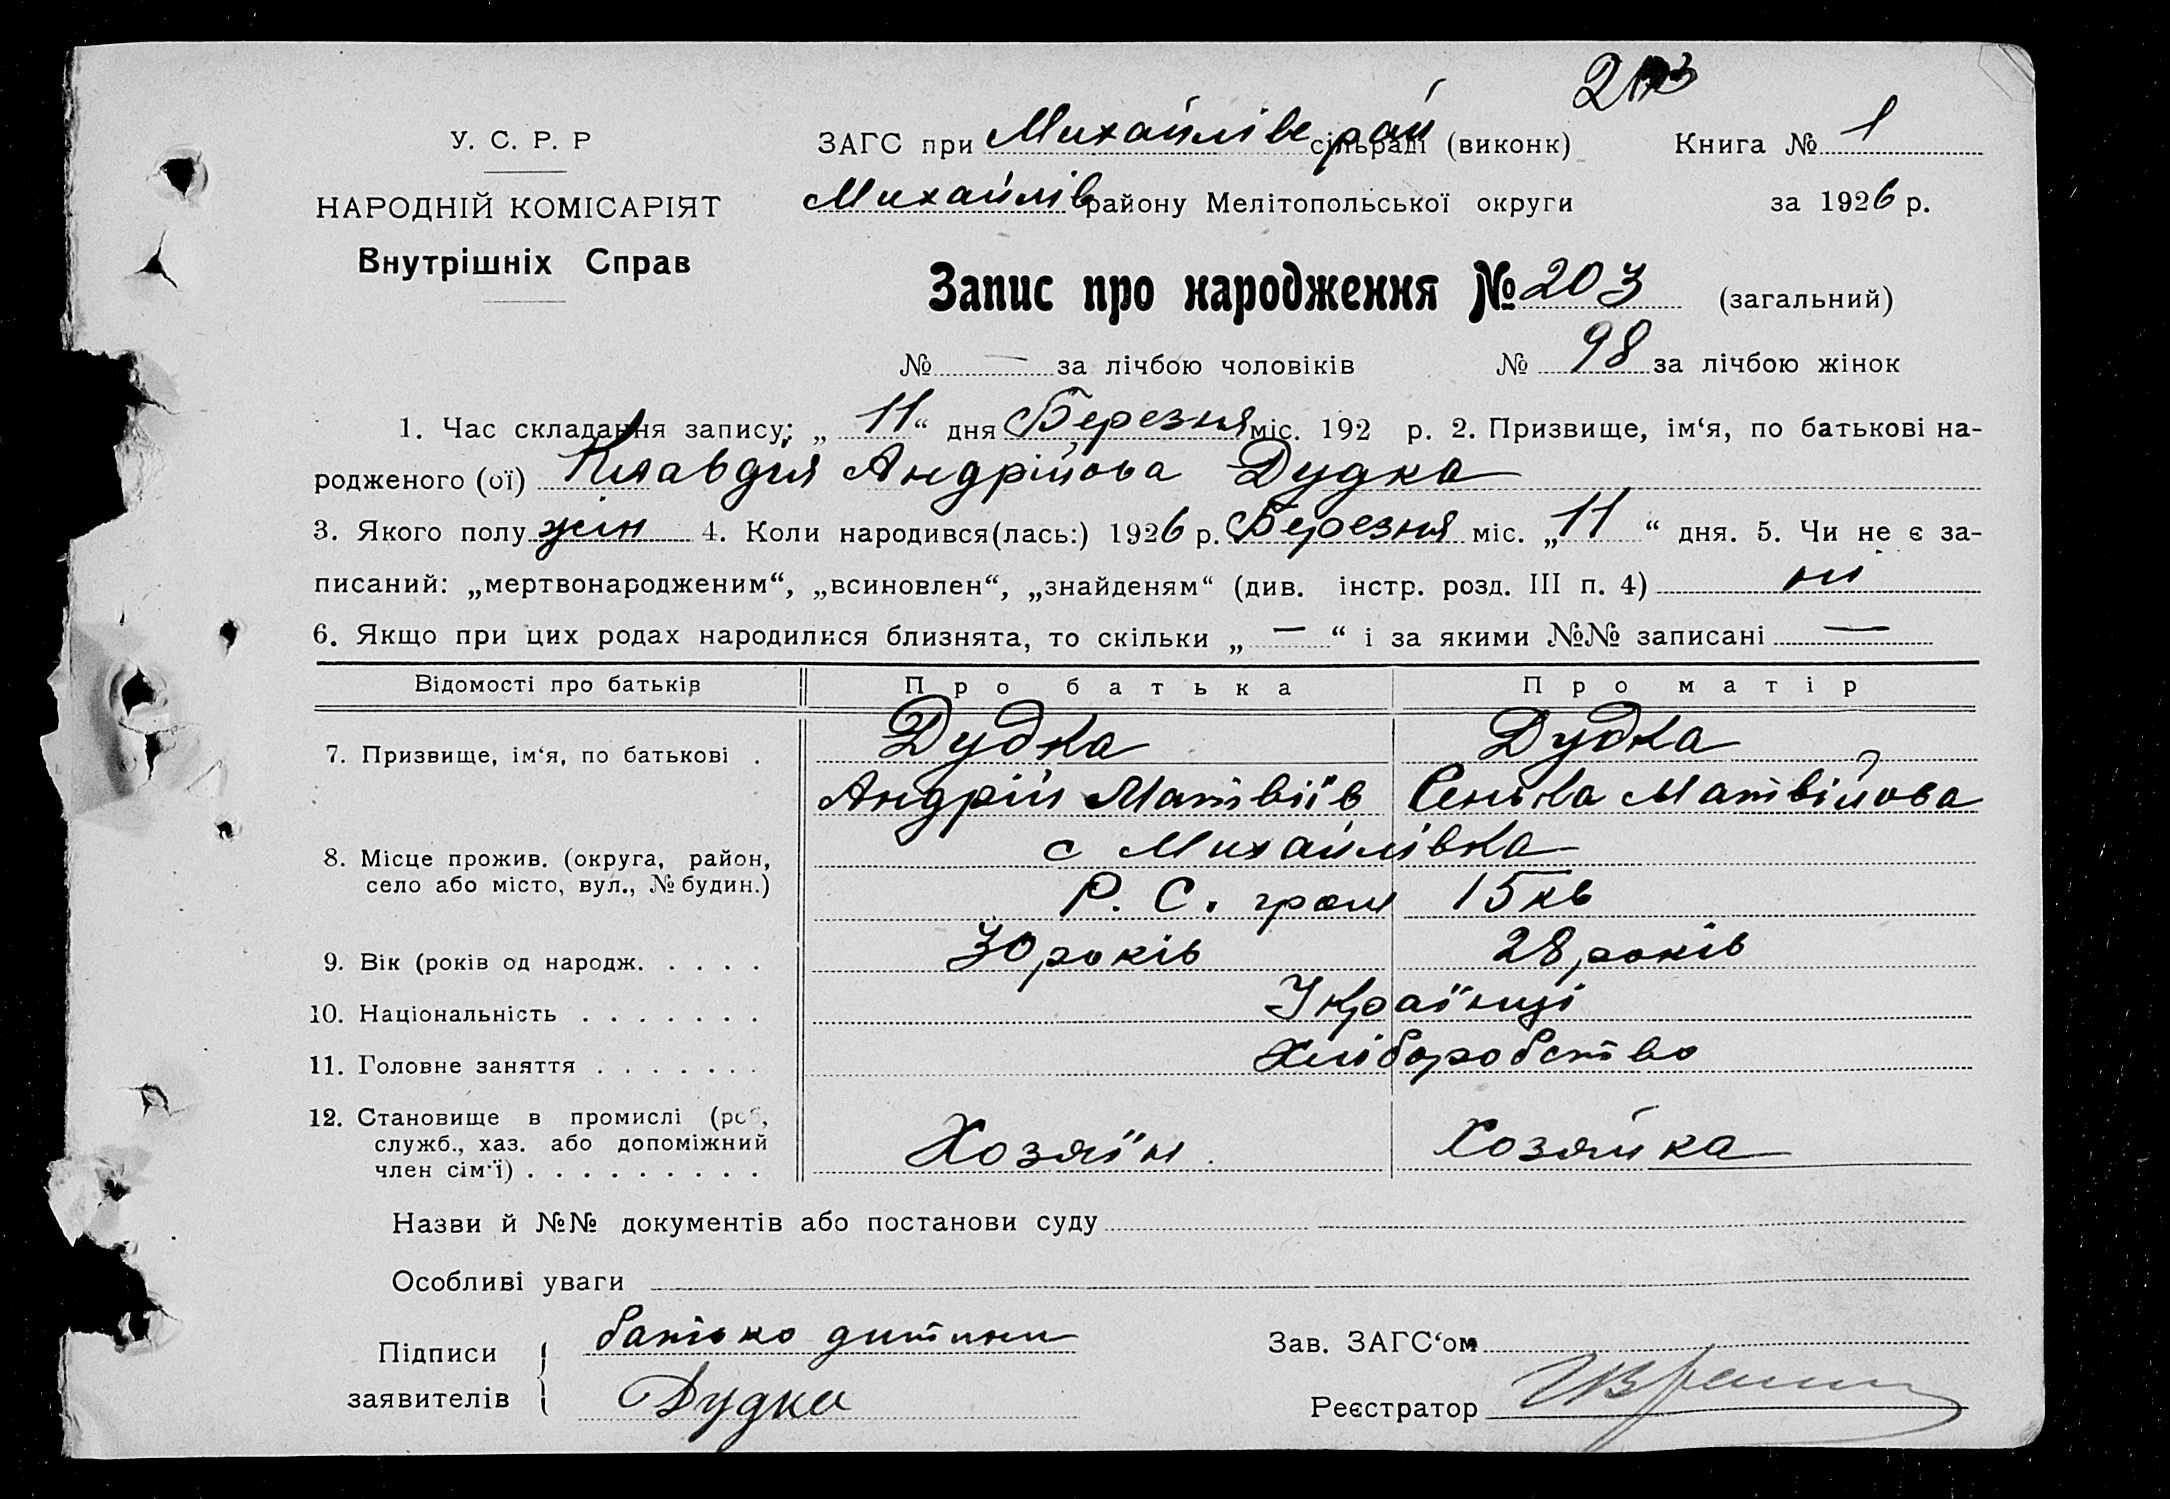 203
У. С. Р. Р
НАРОДНІЙ КОМІСАРІЯТ
Внутрішніх Справ
ЗАГС при Михайлівс рай сільраді (виконк) Книга № 1
Михайлів району Мелітопольської округи за 1926 р.
Запис про народження № 203 (загальний)
№ — за лічбою чоловіків № 98 за лічбою жінок
1. Час складання запису: „ 11 “ дня Березня міс. 192 р. 2. Призвище, ім‘я, по батькові на-
родженого (ої) Клавдія Андрійова Дудка
3. Якого полу жін 4. Коли народився(лась:) 1926 р. Березня міс. „ 11 “ дня. 5. Чи не є за-
писаний: „мертвонародженим“, „всиновлен“, „знайденям“ (див. інстр. розд. III п. 4) ні
6. Якщо при цих родах народилися близнята, то скільки „ — “ і за якими №№ записані —
Відомості про батьків Про батька Про матір
7. Призвище, ім‘я, по батькові . Дудка Дудка
Андрій Матвіїв Сенька Матвійова
8. Місце прожив. (округа, район, с Михайлівка
село або місто, вул., № будин.) Р. С. гром 15 кв
9. Вік (років од народж. . . . . 30 років 28 років
10. Національність . . . . . . . Українці
11. Головне заняття . . . . . . . Хліборобство
12. Становище в промислі (роб,
служб., хаз. або допоміжний Хозяїн Хозяйка
член сім‘ї) . . . . . . . . .
Назви й №№ документів або постанови суду
Особливі уваги
Підписи батько дитини
заявителів Дудка
Зав. ЗАГС‘ом
Реєстратор